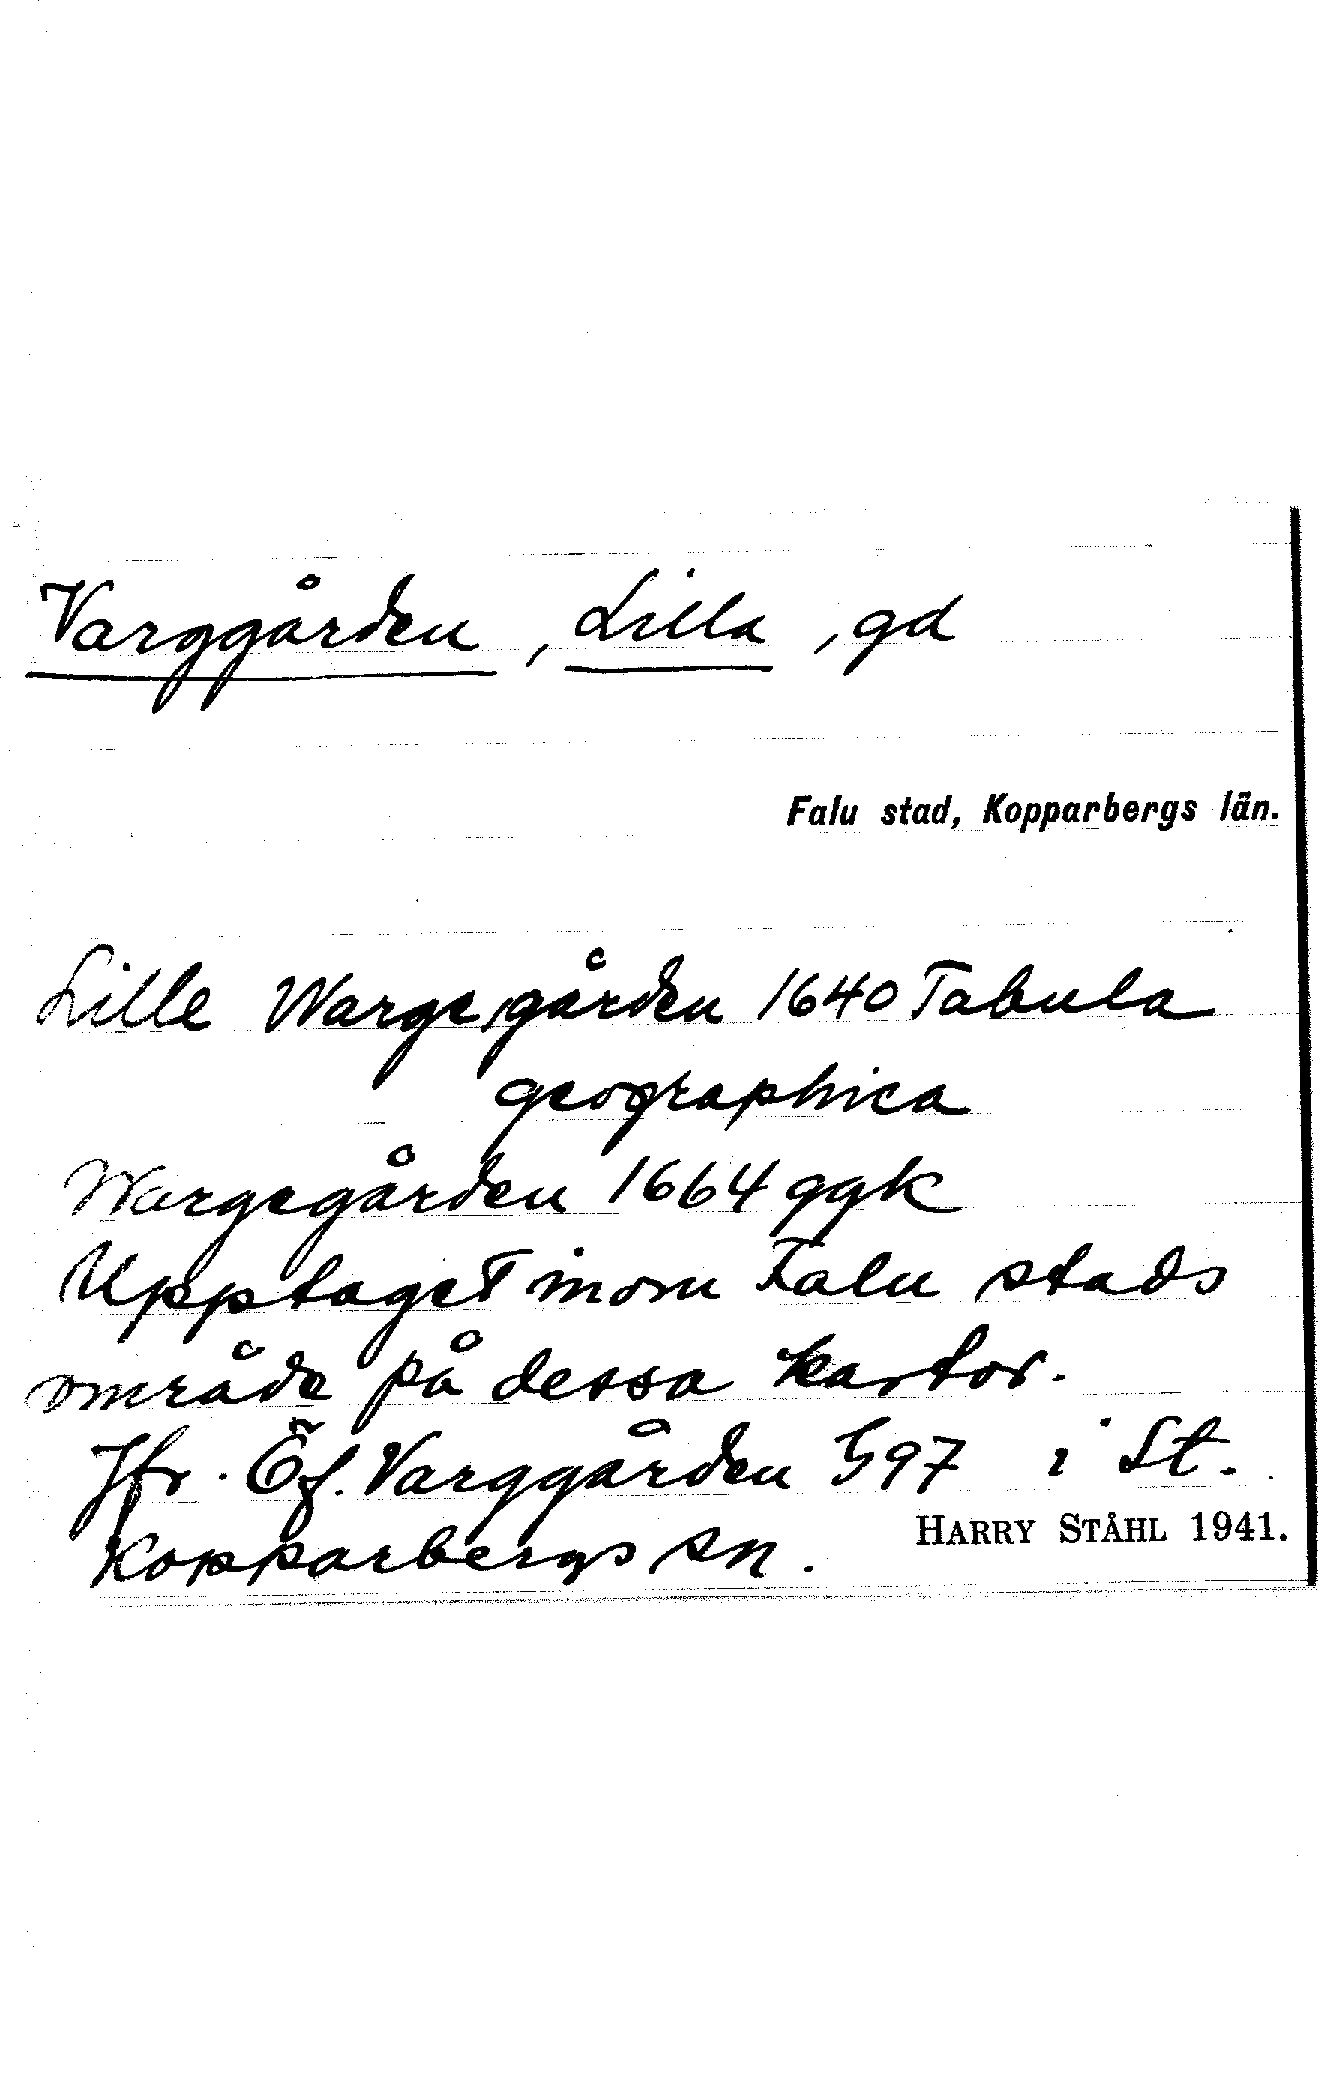 Varggården, Lilla, gd
Falu stad, Kopparbergs län.
Lille Warge gården 1640 Tabula
geographica
Wargegården 1664 ggk
Upptaget inom Falu stads
område på dessa kartor.
Jfr. Öf. Varggården G97 i St.
Kopparbergs sn.
HARRY STÅHL 1941.